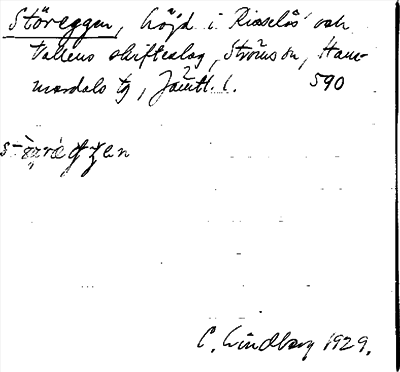 Störeggen, höjd i Risselås och
Vallens skifteslag, Ströms sn, Ham-
merdals tg, Jämtl. l. 590
C. Lindberg 1929.